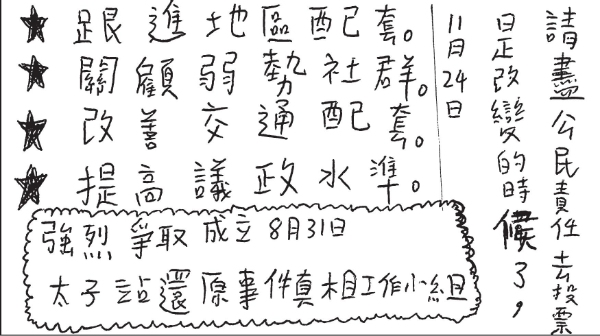 請盡公民責任去投票
是改變的時候了，
11月24日
★跟進地區配套。
★關顧弱勢社群。
★改善交通配套。
★提高議政水準。
強烈爭取成立8月31日
太子站還原事件真相工作小組